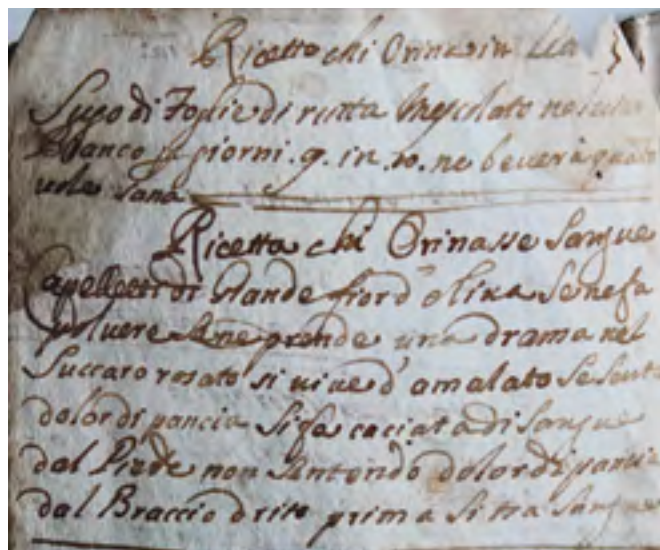 Ricetta chi Orinase in
Sugo di Foglie di rutta Mescolato nel uino
Bianco p giorni .9. in .10. ne beuerà quato
uole sana
Ricetta chi Orinasse Sangue
Capelletti di Glande fior d'oliua Se ne fa
poluere Se ne prende una drama nel
Succaro rosato si uiue d'amalato Se sente
dolor di pancia Si fa cauata di Sangue
dal Piede non Sentendo dolor di pancia
dal Braccio drito prima Si tra Sangue